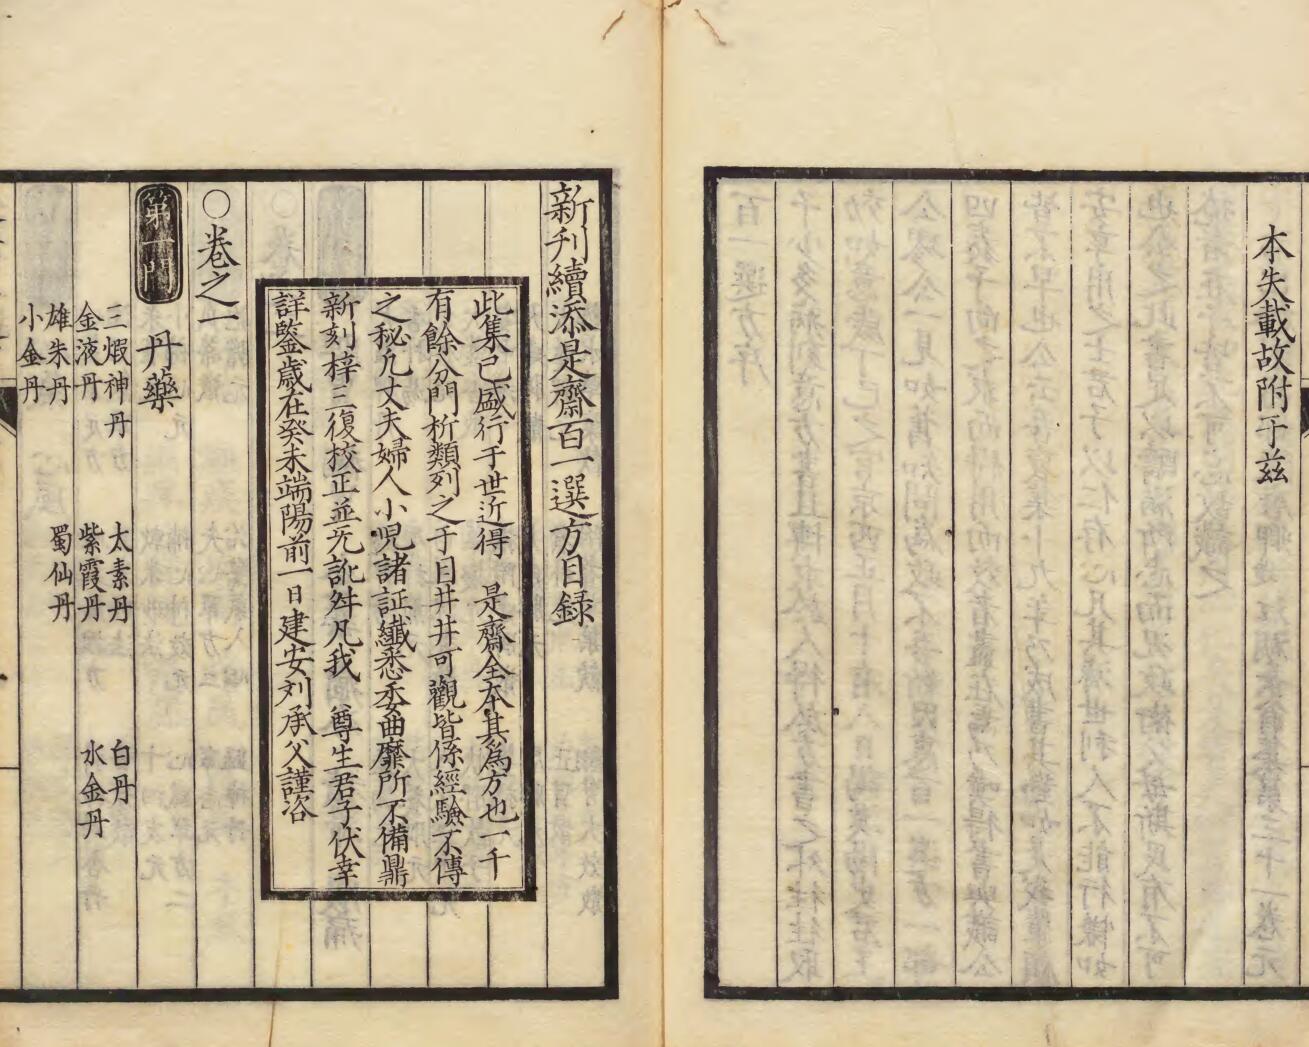 本失載故附于兹
新刋續添是齋百一選方目録
此集已盛行于世近得　是齋全本其爲方也一千
有餘分門析類列之于目井井可觀皆係經驗不傳
之秘凢丈夫婦人小児諸証纎悉委曲靡所不備鼎
新刻梓三復校正並旡訛舛凡我　尊生君子伏幸
詳鑒歳在癸未端陽前一日建安刘承父謹咨
○卷之一
第一門　丹藥
三煆神丹　太素丹　白丹
金液丹　紫霞丹　水金丹
雄朱丹　蜀仙丹
小金丹